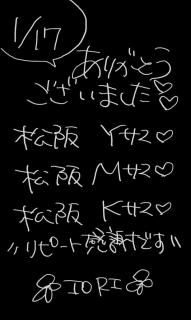 1/17
ありがとう
ございました♡
松阪 Yサマ♡
松阪 Mサマ♡
松阪 Kサマ♡
〃リピート感謝です〃
IORI